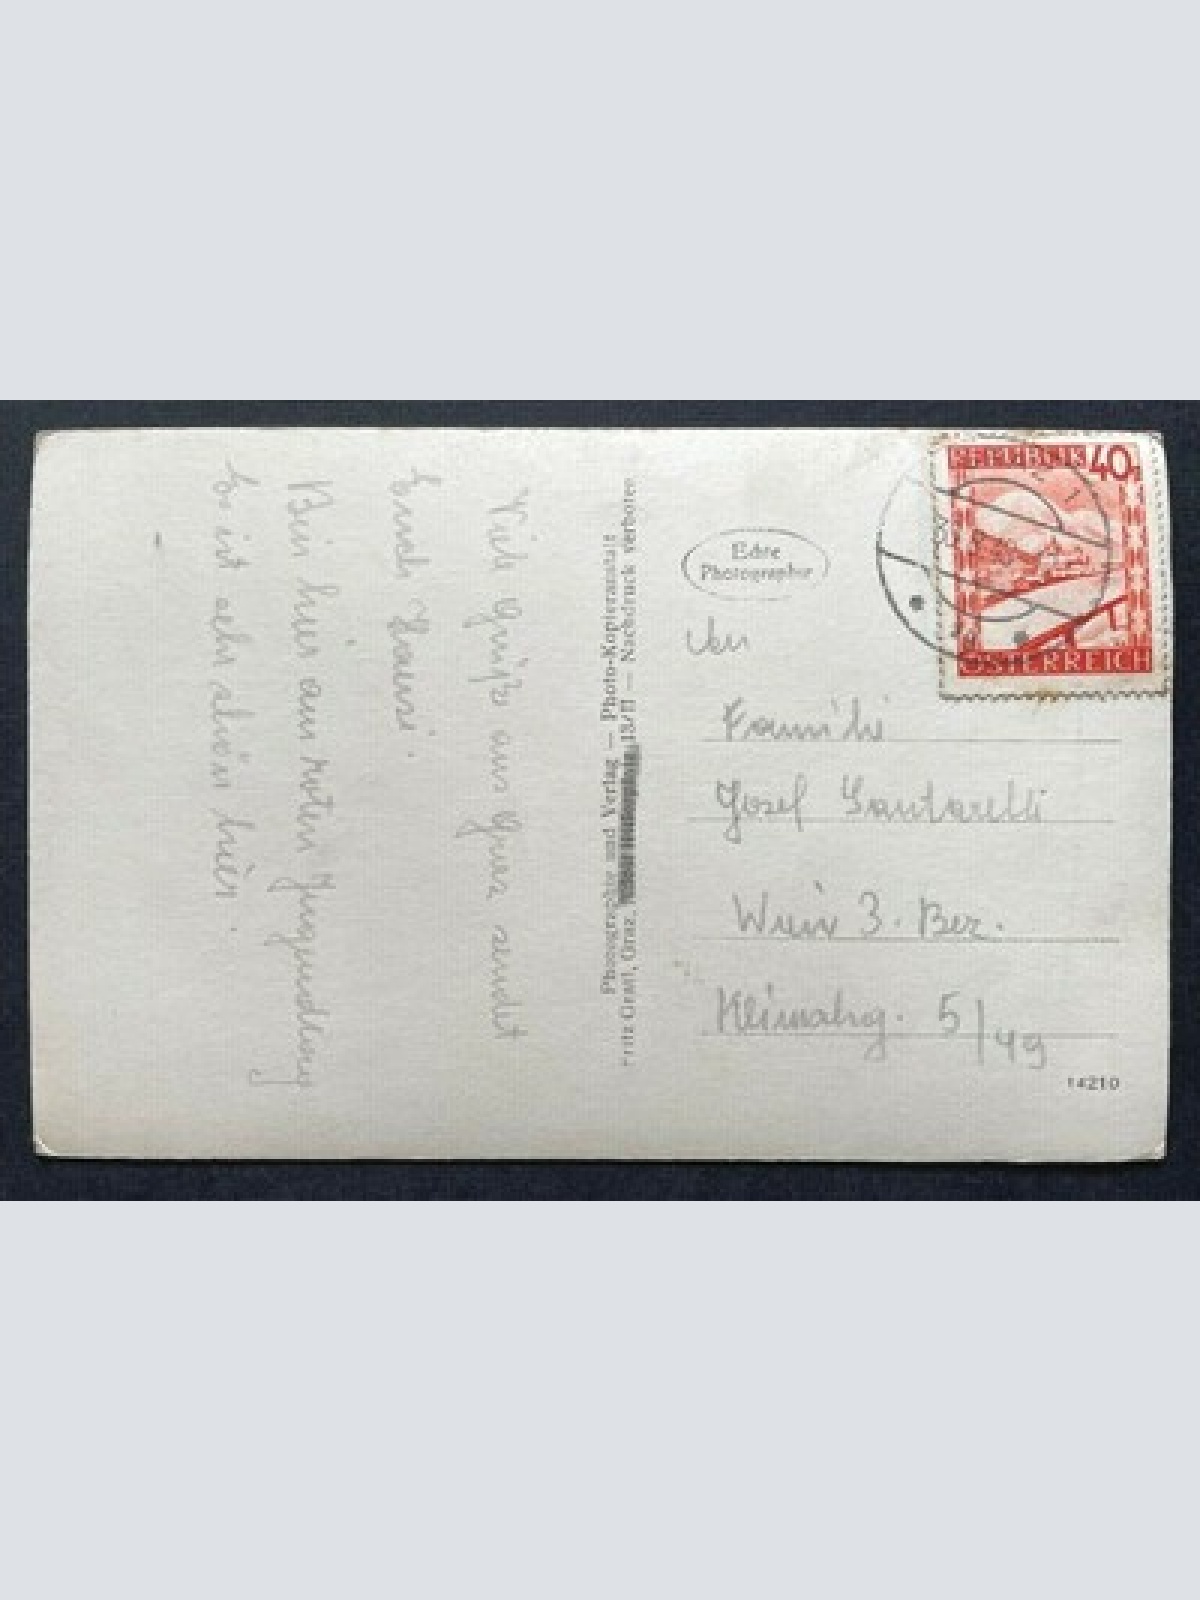 Viele Grüße aus Graz sendet
Euch Hansi.
Bin hier am roten
Es ist sehr schön hier.
Photographie und Verlag — Photo-Kopieranstalt
Fritz Gratl, Graz, 13/II — Nachdruck verboten
Echte
Photographie
REPUBLIK 40
ÖSTERREICH
An
Familie
Josef Santarelli
Wien 3. Bez.
5/49
14210